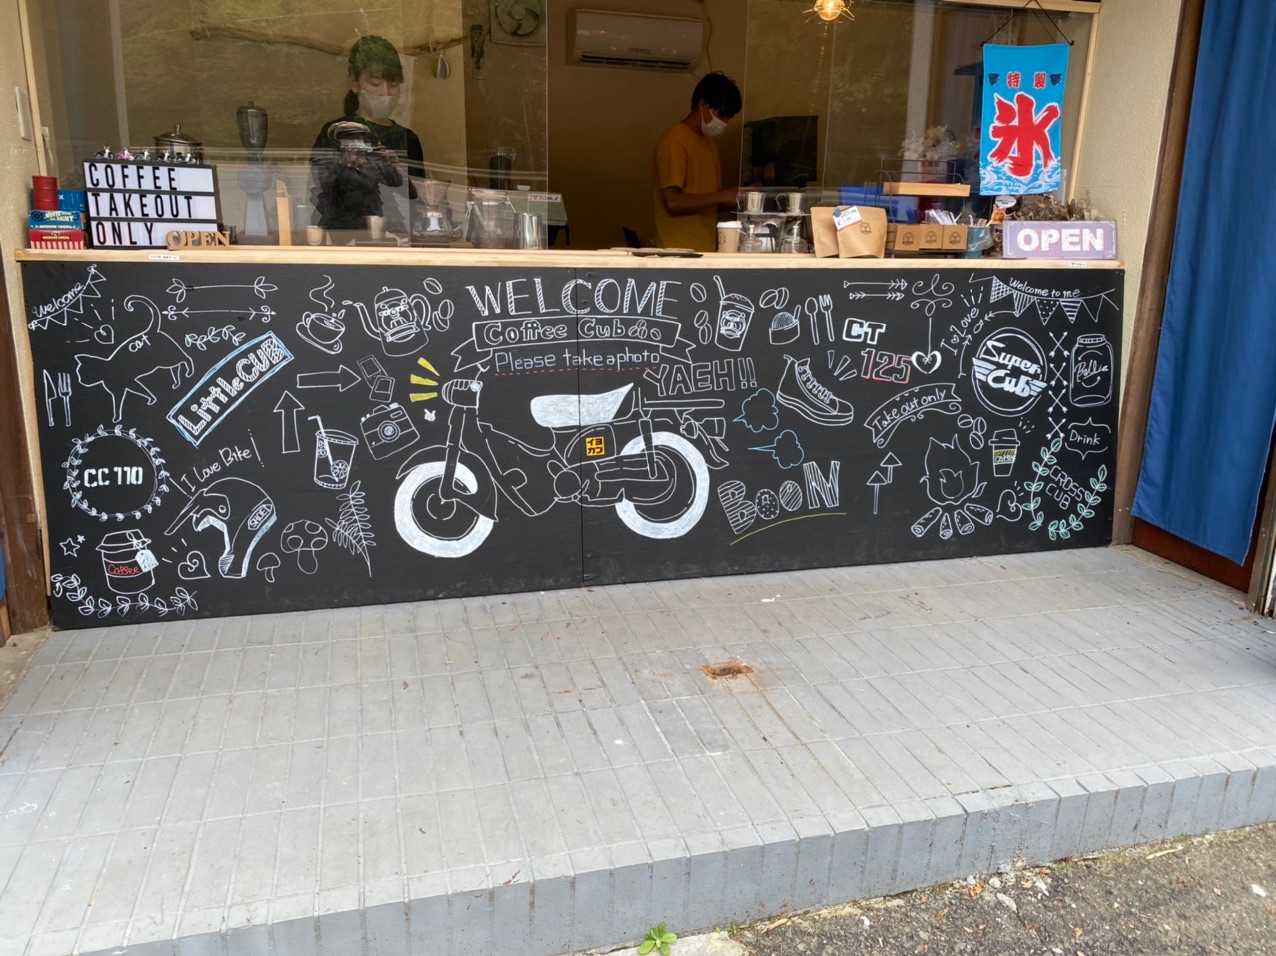 特製
氷
COFFEE
TAKEOUT
ONLY
OPEN
OPEN
Welcome
WELCOME
Coffee Cub
Please take a photo
YAEH!!
cat
Little CUB
CT
125
I Love
Welcome to me
Super
Cub
Take out only
Drink
イヨ
カブ
CC 110
I Love Bike!
BOOON
Coffee
CROSS
CUB
SHOEI
Coffee